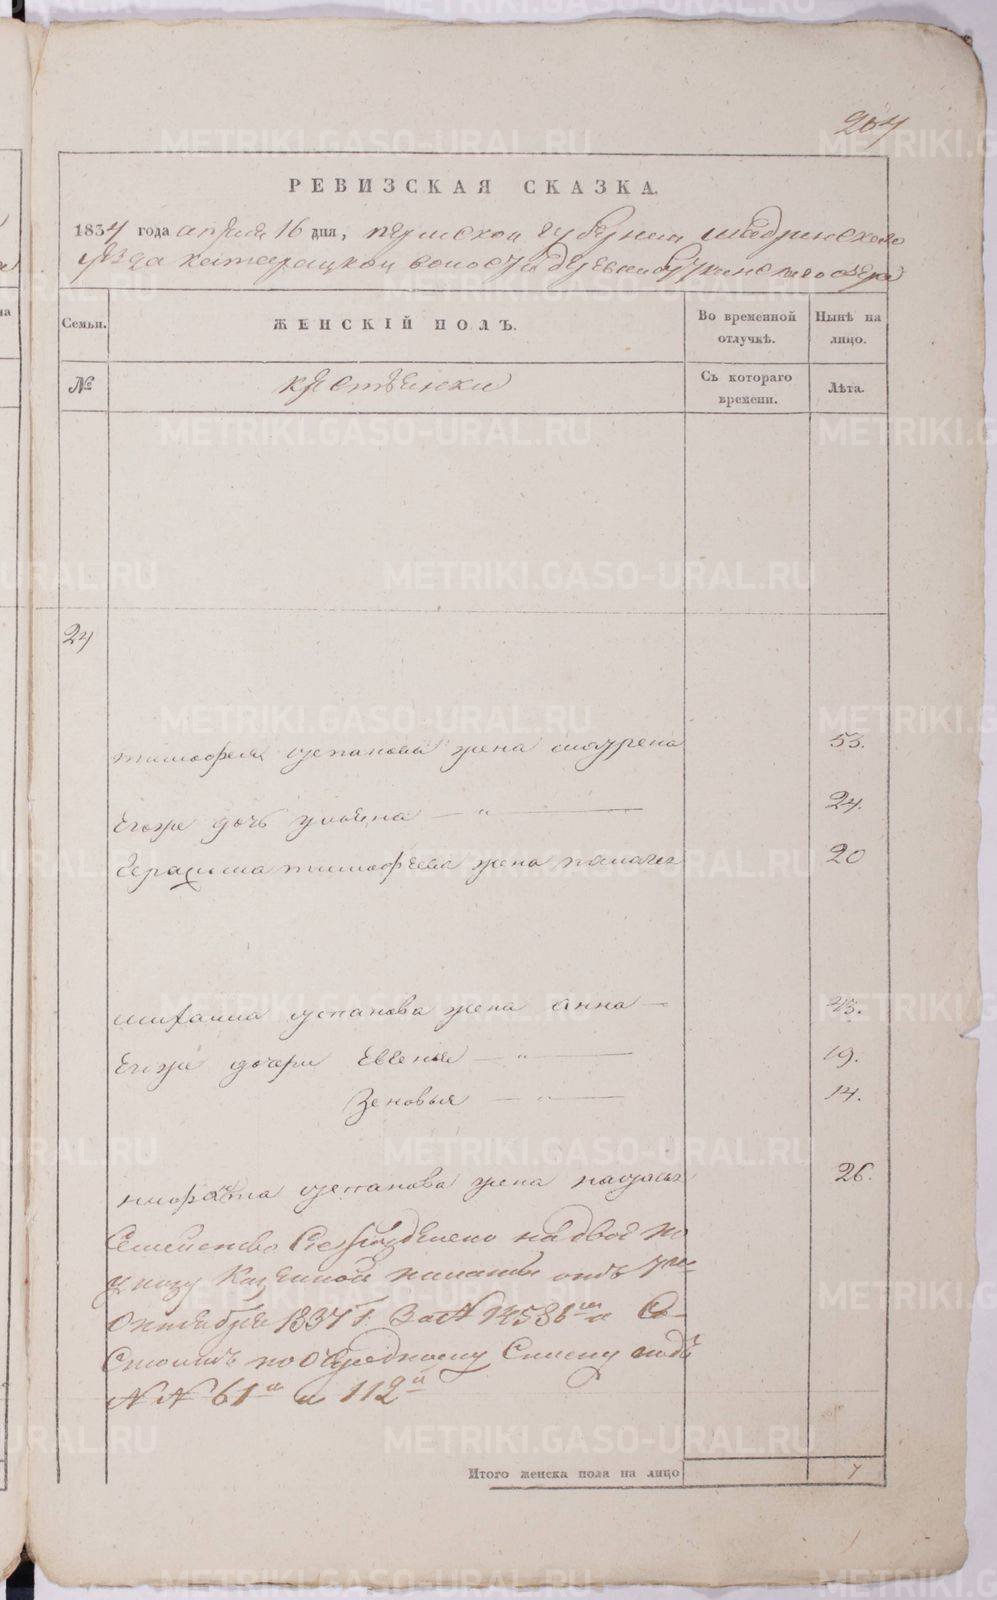 264
РЕВИЗСКАЯ СКАЗКА.
1834 года апреля 16 дня, пермской губернии шадринского
уезда катарацкой волости деревни
Семьи.
ЖЕНСКІЙ ПОЛЪ.
Во временной отлучкѣ.
Нынѣ на лицо.
№
крестьянки
Съ котораго времени.
Лѣта.
24
тимофея степанова жена 53.
Егоже дочь ульяна — " — 24.
Герасима тимофеева жена пелагея 20
михаила степанова жена анна — 43.
Егоже дочери Евгенья — " — 19.
Зеновья — " — 14.
степанова жена настасья 26.
Семейство Сіе разделено на двое по
указу Казенной палаты отъ 7го
Октября 1837 г. За № Со-
Стоитъ по очередному Списку подъ
№ № 61 и 112
Итого женска пола на лицо 7
METRIKI.GASO-URAL.RU